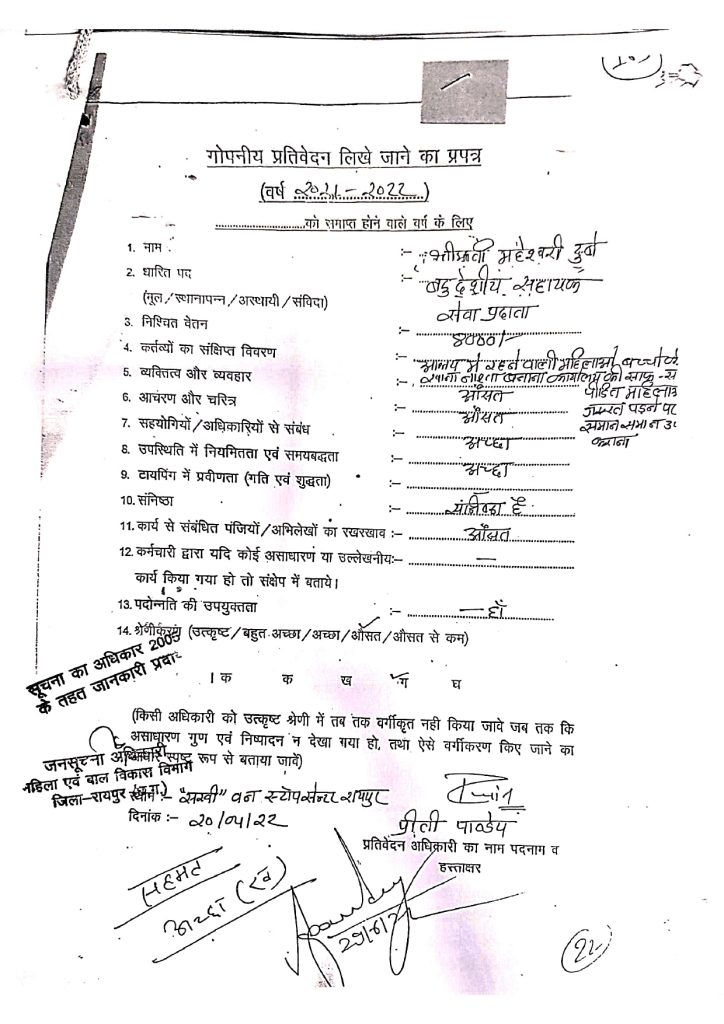 गोपनीय प्रतिवेदन लिखे जाने का प्रपत्र
(वर्ष 2021-2022)
....................को समाप्त होने वाले वर्ष के लिए
1. नाम :- श्रीमती महेश्वरी दुबे
2. धारित पद :- बहुद्देशीय सहायक
(मूल/स्थानापन्न/अस्थायी/संविदा) सेवा प्रदाता
3. निश्चित वेतन :-
4. कर्तव्यों का संक्षिप्त विवरण :- आश्रय में रहने वाली महिलाओं, बच्चों के
खाना नाश्ता बनाना कार्यालय की साफ-स
पीड़ित महिलाओं
जरूरत पड़ने पर
कराना
5. व्यक्तित्व और व्यवहार :- औसत
6. आचरण और चरित्र :- औसत
7. सहयोगियों/अधिकारियों से संबंध :- अच्छा
8. उपस्थिति में नियमितता एवं समयबद्धता :- अच्छा
9. टायपिंग में प्रवीणता (गति एवं शुद्धता) :-
10. संनिष्ठा :- है
11. कार्य से संबंधित पंजियों/अभिलेखों का रखरखाव :- औसत
12. कर्मचारी द्वारा यदि कोई असाधारण या उल्लेखनीय:- —
कार्य किया गया हो तो संक्षेप में बताये।
13. पदोन्नति की उपयुक्तता :- — हाँ
14. श्रेणीकरण (उत्कृष्ट/बहुत अच्छा/अच्छा/औसत/औसत से कम)
सूचना का अधिकार 2005
के तहत जानकारी प्रदा
।क क ख ग घ
(किसी अधिकारी को उत्कृष्ट श्रेणी में तब तक वर्गीकृत नही किया जावे जब तक कि
असाधारण गुण एवं निष्पादन न देखा गया हो, तथा ऐसे वर्गीकरण किए जाने का
आधार स्पष्ट रूप से बताया जावें)
जनसूचना अधिकारी
महिला एवं बाल विकास विभाग
जिला-रायपुर (छ.ग.)
स्थान :- "सखी" वन स्टॉप सेन्टर रायपुर
दिनांक :- 20/04/22
प्रीती पाण्डेय
प्रतिवेदन अधिकारी का नाम पदनाम व
हस्ताक्षर
सहमत
अच्छा (ख)
22